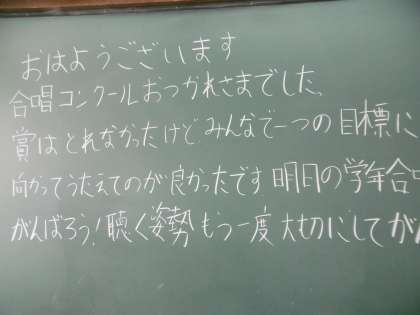 おはようございます
合唱コンクールおつかれさまでした、
賞はとれなかったけどみんなで一つの目標に
向かってうたえてのが良かったです明日の学年合
がんばろう!聴く姿勢もう一度大切にしてが